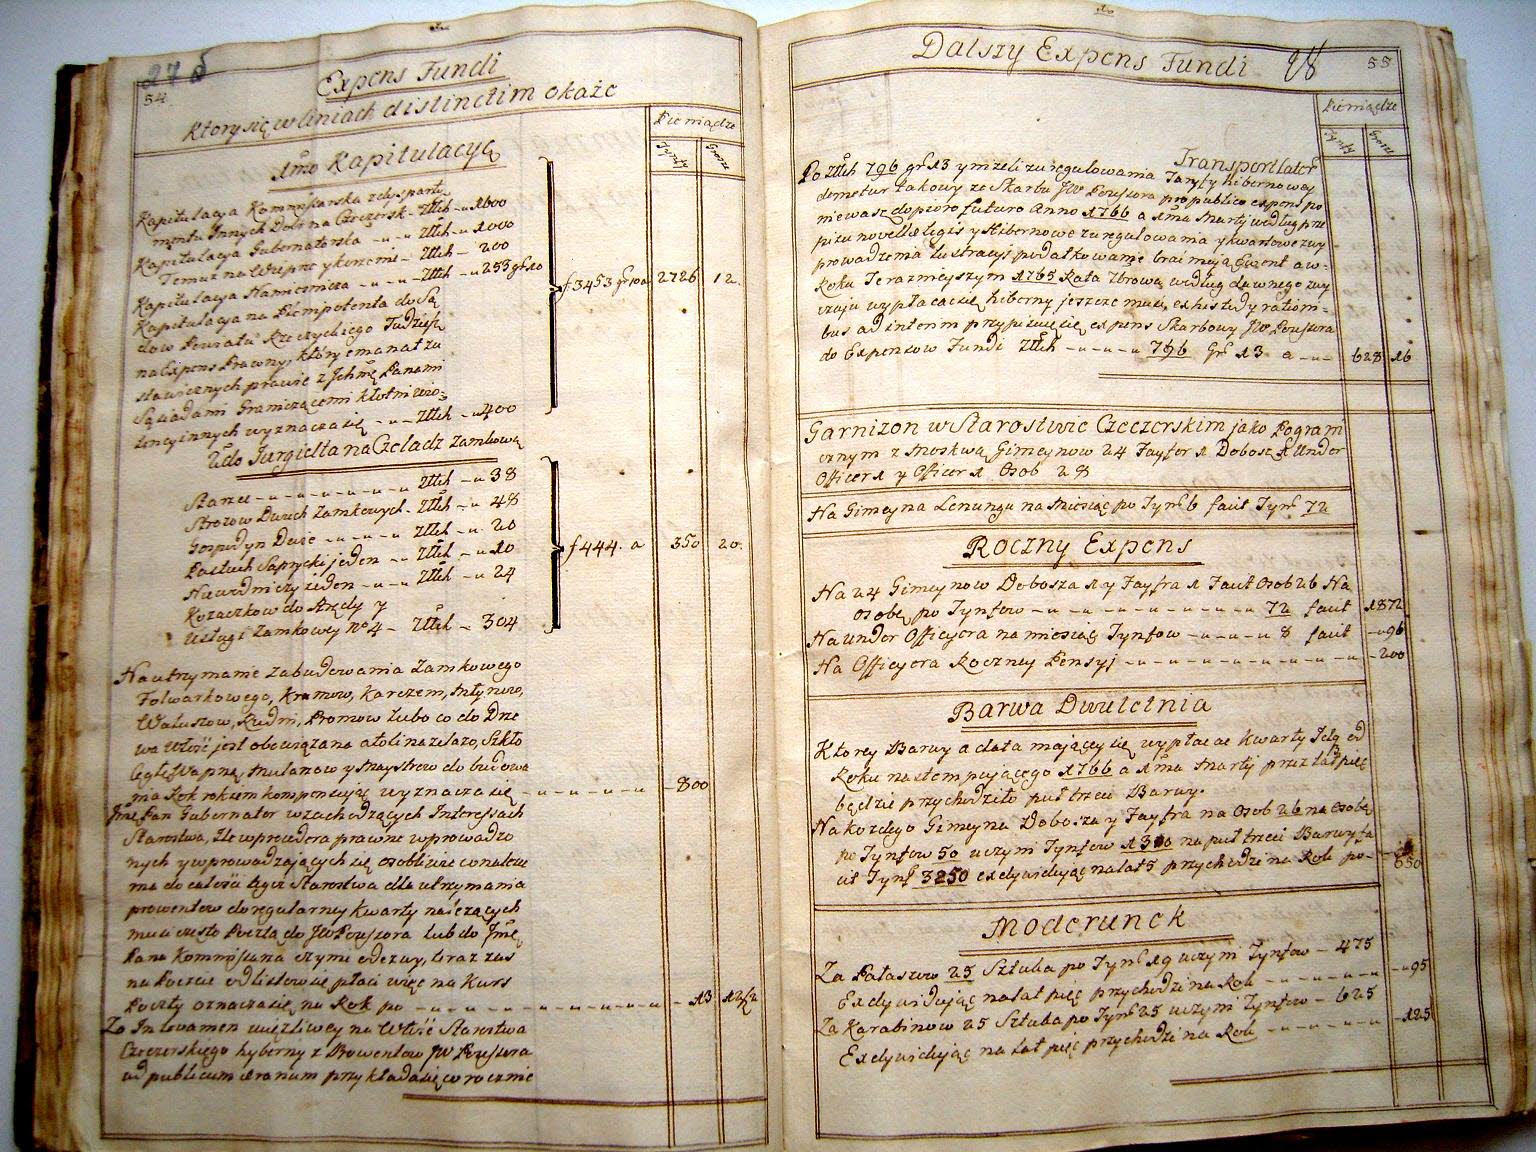 54
Expens Fundi
Ktory się w liniach distinctim okaże
Pieniądze
Tynfy Grosze
1mo Kapitulacyą
Kapitulacya Kommissarska z dyspart.
mentu Innych Dobr na Czeczersk - Złłch - " 1600
Kapitulacya Gubernatorska - " - " Złłch - " 1000
Temu na Wieprze y korzenie - Złłch - 200
Kapitulacya Namiesnicza - " - " Złłch - " 253 gr 10
Kapitulacya na Plenipotenta do Są
dow Powiatu Rzeczyckiego Tudzież
na Expens Prawny, który emanat za
stawicznych prawie z Ichmć Panami
Sąsiadami Graniczącemi kłotni wio=
lencyi innych wyznacza się - " - Złłch - " 400
f 3453 gr 10 a 2726 12.
2do Jurgielta na Czeladz Zamkową
Starcu - " - " - " - " - " Złłch - " 38
Strożow Dwuch Zamkowych - Złłch - " 48
Gospodyn Dwie - " - " - " Złłch - " 20
Pastuch Saprycki jeden - " Złłch - " 10
Nawodniczy ieden - " - " Złłch - " 24
Kozaczkow do Stzędy y
Usługi Zamkowey No 4 - Złłch - 304
f 444. a 350 20.
Na utrzymanie zabudowania Zamkowego
Folwarkowego, Kramow, Karczem, Młynow,
Waluszow, Rudni, Promow lubo co do Drze
wa Włość jest obowiązana a to li na żelazo, Szkło
Cegłę Wapno, Mularzow y Maystrow do budowa
nia Rok rokiem kompensując wyznacza się - " - " - " - " - " 800
Jmć Pan Gubernator w zachodzących Interessach
Starostwa, Ile w procedera prawne wprowadzo
nych y wprowadzających się osobliwie co należe
ma do całości tego Starostwa dla utrzymania
prowentow do regularney Kwarty należących
musi często Pocztą do JW Pousora lub do Jmć
Pana Kommissarza czynić odezwy, teraz zas
na Poczcie od listow się płaci więc na Kurs
Poczty oznacza się na Rok po - " - " - " - " - " - 13 12 1/2
Za In levamen uciążliwey na Włość Starostwa
Czeczerskiego hyberny z Prowentow JW Pousora
ad publicum aeranum przykłada się corocznie
55
Dalszy Expens Fundi 28
Pieniądze
Tynfy Grosze
Transport Later
Po Złłch 796 gr 13 y inżeli zaregulowania Taryfy hibernowey
demetur takowy ze Skarbu JW Pousora pro publico expens po
niewasz dopiero futuro Anno 1766 a 1ma Marty według prze
pisu novellae legis y Hibernowe zaregulowania y kwartowe zwy
prowadzenia lustracyi podatkowanie brai mają Evvent a w-
Roku Terazniejszym 1765 Rata Zbrowa według dawnego zwy
czaju wypłacać się hiberny jeszcze musi, ex his tedy ration=
bus ad interim przypisuje się expens Skarbowy JW Pousora
do Expensow Fundi Złłch - " - " - " 796 Gr 13 a - " - 628 16
Garnizon w Starostwie Czeczerskim jako Pograni
cznym z Moskwą Gimeynow 24 Fayfer 1 Dobosz 1 Under
Officer 1 y Officer 1 Osob 28
Na Gimeyna Lenungu na Miesiąc po Tynf 6 facit Tynf 72
Roczny Expens
Na 24 Gimeynow Dobosza 1 y Fayfra 1 Facit Osob 26 Na
osobę po Tynfow - " - " - " - " - " - " - " 72 facit 1872
Na Under Officyera na miesiąc Tynfow - " - " - " 8 facit - " 96
Na Officyera Roczney Pensyi - " - " - " - " - " - " - " - " - 200
Barwa Dwuletnia
Ktorey Barwy a data mającey się wypłacac Kwarty Jch od
Roku następującego 1766 a 1ma Marty przez lat pięć
będzie przychodziło puł trzeci Barwy.
Na kozdego Gimeyna Dobosza y Fayfra na Osob 26 na Osobę
po Tynfow 50 uczyni Tynfow 1300 na puł trzeci Barwy fa
cit Tynf 3250 exdywidując na lat 5 przychodzi na Rok po - - 650
Moderunek
Za Pałaszow 25 Sztuka po Tynf 19 uczyni Tynfow - 475
Exdywidując na lat pięć przychodzi na Rok - " - " - " - " - " 95
Za Karabinow 25 Sztuka po Tynf 25 uczyni Tynfow - 625
Exdywidując na lat pięć przychodzi na Rok - " - " - " - " - 125